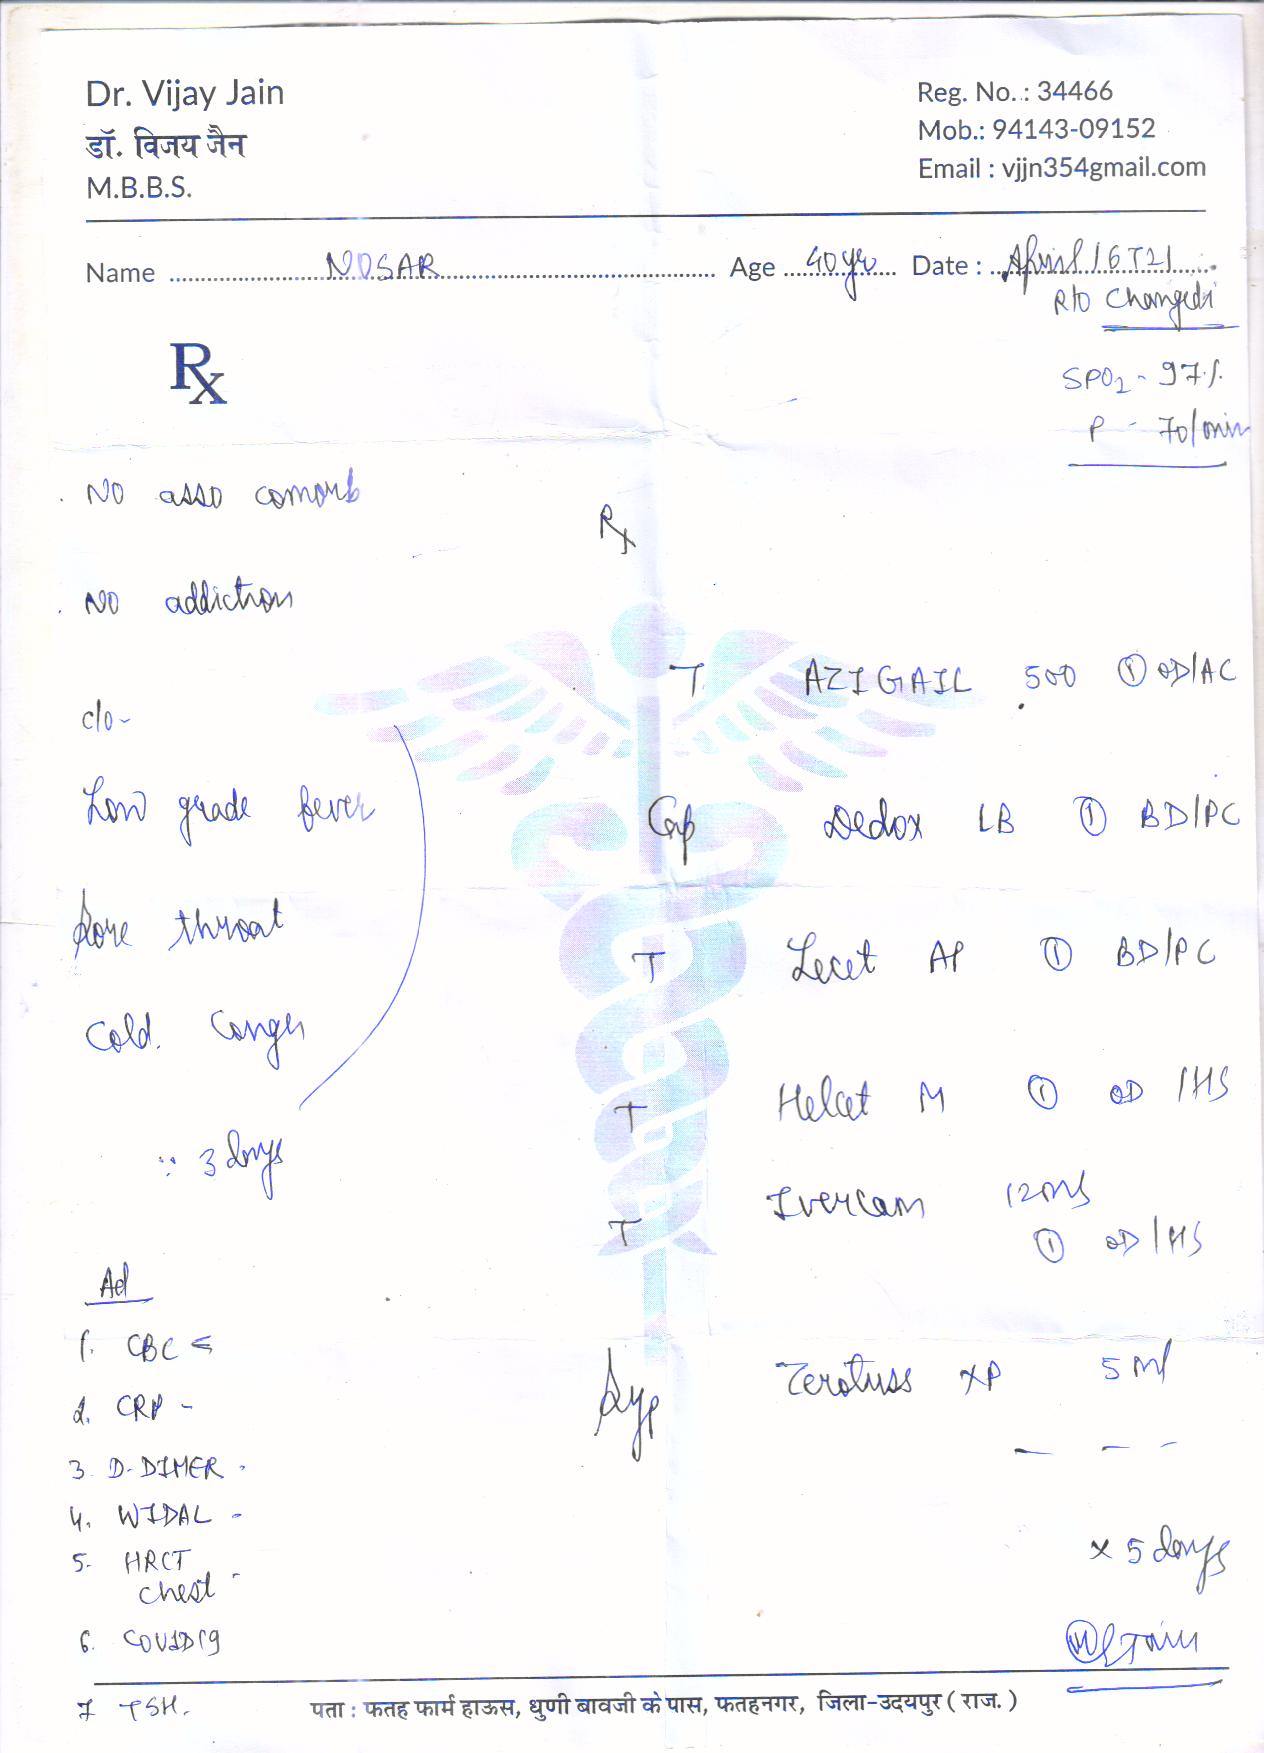 Dr. Vijay Jain
डॉ. विजय जैन
M.B.B.S.
Reg. No. : 34466
Mob.: 94143-09152
Email : vjjn354gmail.com
Name NOSAR Age 40yr Date : April 16 T21
R/O Changedi
Rx
SPO2 - 97%
P - 70/min
NO asso comorb
NO addiction
c/o-
Low grade fever
Sore throat
Cold.
3 days
Ad
1. CBC
2. CRP -
3. D-DIMER -
4. WIDAL -
5. HRCT
chest -
6. COVID19
7 TSH.
Rx
T AZIGAIL 500 ① OD/AC
Cap Dedox LB ① BD/PC
T Lecet AP ① BD/PC
T M ① OD/HS
T 12
① OD/HS
Syp Zerotuss XP 5 ml
— — —
x 5 days
पता : फतह फार्म हाऊस, धुणी बावजी के पास, फतहनगर, जिला-उदयपुर ( राज. )